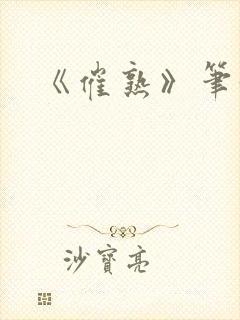 《催熟》筆
沙寶亮